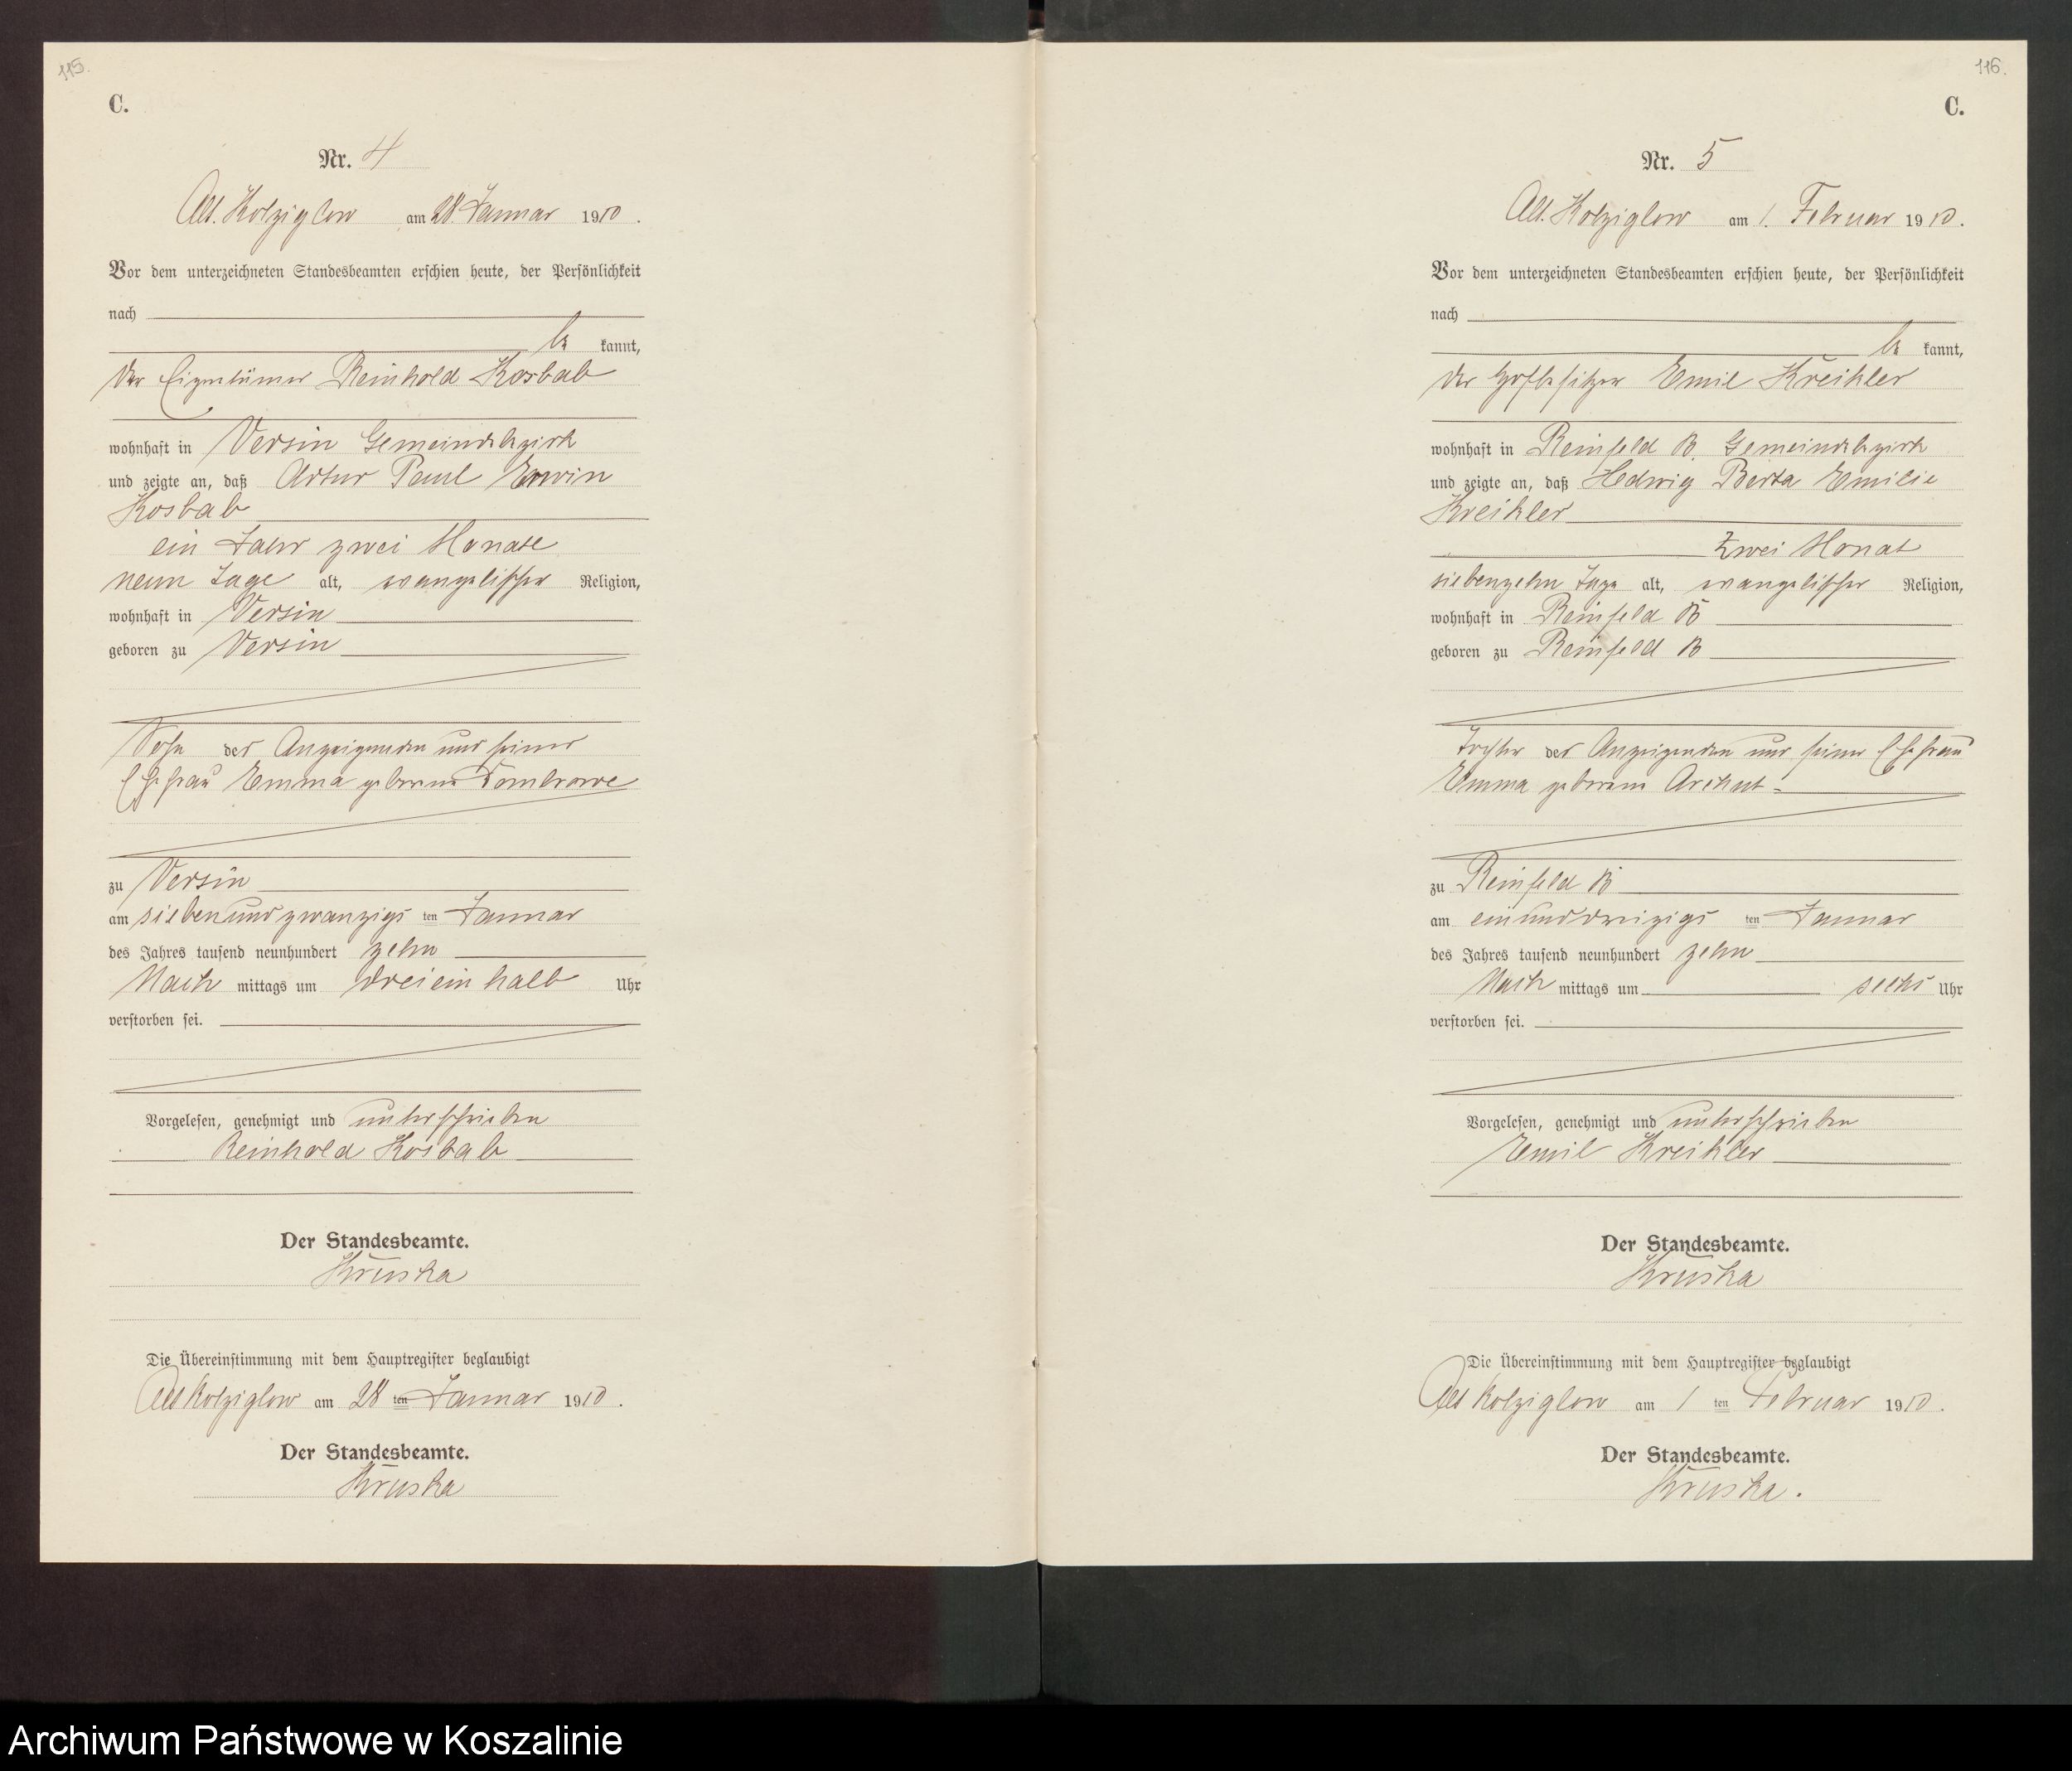 115.
C.
Nr. 4
Alt. Kolziglow am 28. Januar 1910.
Vor dem unterzeichneten Standesbeamten erschien heute, der Persönlichkeit
nach
be kannt,
der Eigentümer Reinhold Kosbab
wohnhaft in Versin Gemeindebezirk
und zeigte an, daß Artur Paul Erwin
Kosbab
ein Jahr zwei Monate
neun Tage alt, evangelischer Religion,
wohnhaft in Versin
geboren zu Versin
Sohn des Anzeigenden und seiner
Ehefrau Emma geborene Dombrowe
zu Versin
am siebenundzwanzigs ten Januar
des Jahres tausend neunhundert zehn
Nach mittags um dreieinhalb Uhr
verstorben sei.
Vorgelesen, genehmigt und unterschrieben
Reinhold Kosbab
Der Standesbeamte.
Kruska
Die Übereinstimmung mit dem Hauptregister beglaubigt
Alt Kolziglow am 28 ten Januar 1910.
Der Standesbeamte.
Kruska
116.
C.
Nr. 5
Alt. Kolziglow am 1. Februar 1910.
Vor dem unterzeichneten Standesbeamten erschien heute, der Persönlichkeit
nach
be kannt,
der Hofbesitzer Emil Kreikler
wohnhaft in Reinfeld B. Gemeindebezirk
und zeigte an, daß Hedwig Berta Emilie
Kreikler
zwei Monat
siebenzehn Tage alt, evangelischer Religion,
wohnhaft in Reinfeld B
geboren zu Reinfeld B
Tochter des Anzeigenden und seiner Ehefrau
Emma geborene
zu Reinfeld B
am einunddreizigs ten Januar
des Jahres tausend neunhundert zehn
Nach mittags um sechs Uhr
verstorben sei.
Vorgelesen, genehmigt und unterschrieben
Emil Kreikler
Der Standesbeamte.
Kruska
Die Übereinstimmung mit dem Hauptregister beglaubigt
Alt Kolziglow am 1 ten Februar 1910.
Der Standesbeamte.
Kruska.
Archiwum Państwowe w Koszalinie